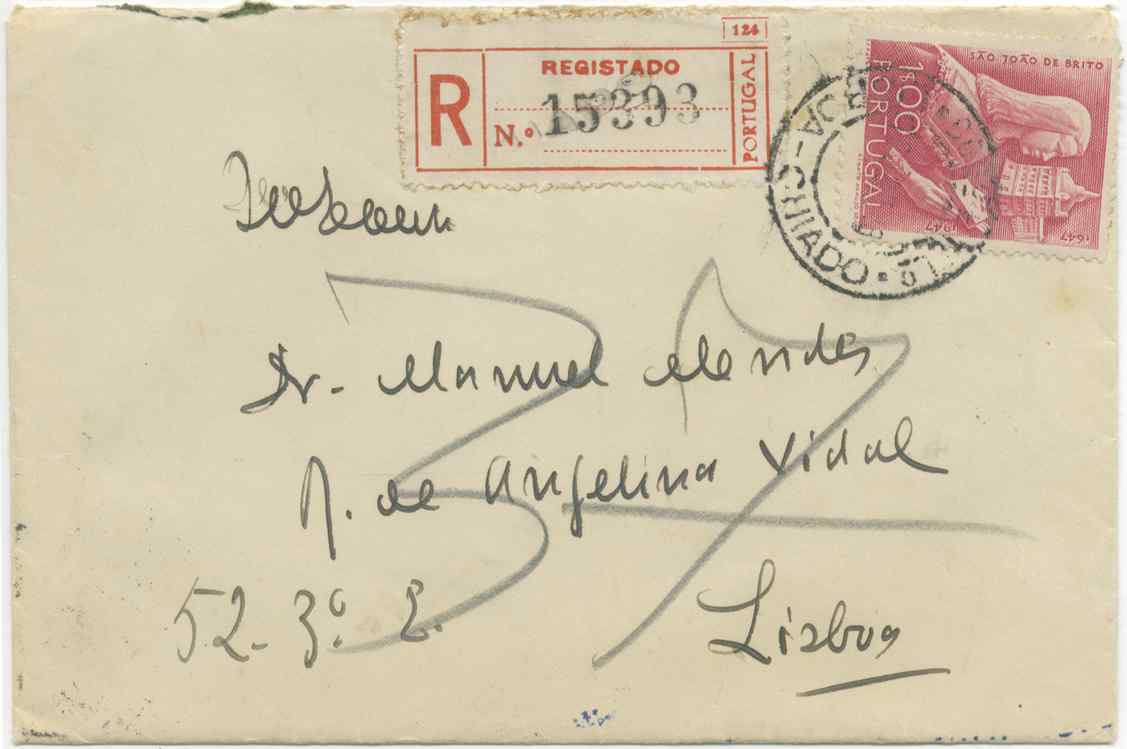 124
REGISTADO
R
N.º 15393
PORTUGAL
SÃO JOÃO DE BRITO
1$00
PORTUGAL
1647
1947
CHIADO
Dr. Manuel Mendes
R. de Angelina Vidal
52-3º E.
Lisboa
37